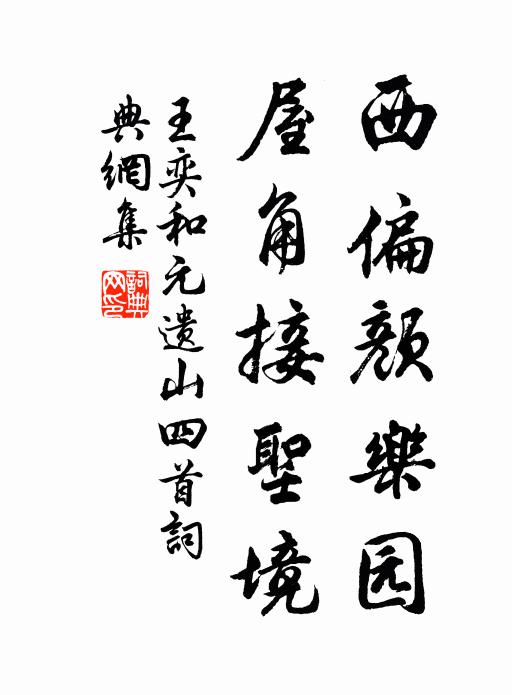 西偏顏樂园
屋角接聖境
王奕和元遺山四首詞
典網集
詞典
网印